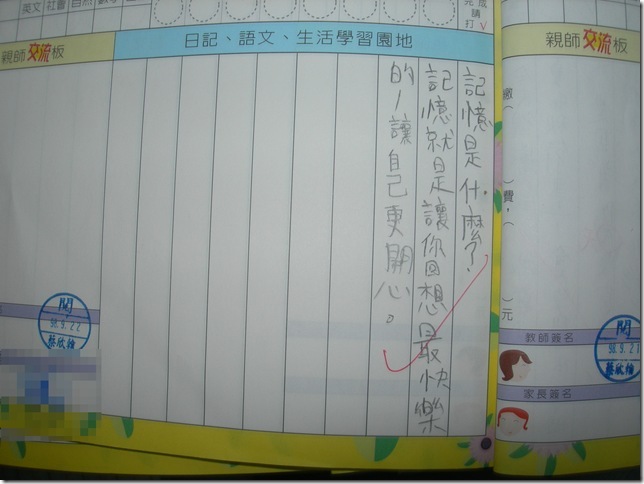 英文 社會 自然 數學
完成請打√
親師交流板
日記、語文、生活學習園地
親師交流板
記憶是什麼?
記憶就是讓你回想最快樂
的,讓自己更開心。
繳( )費,( )元
閱
98.9.22
教師簽名
閱
98.9.2
家長簽名